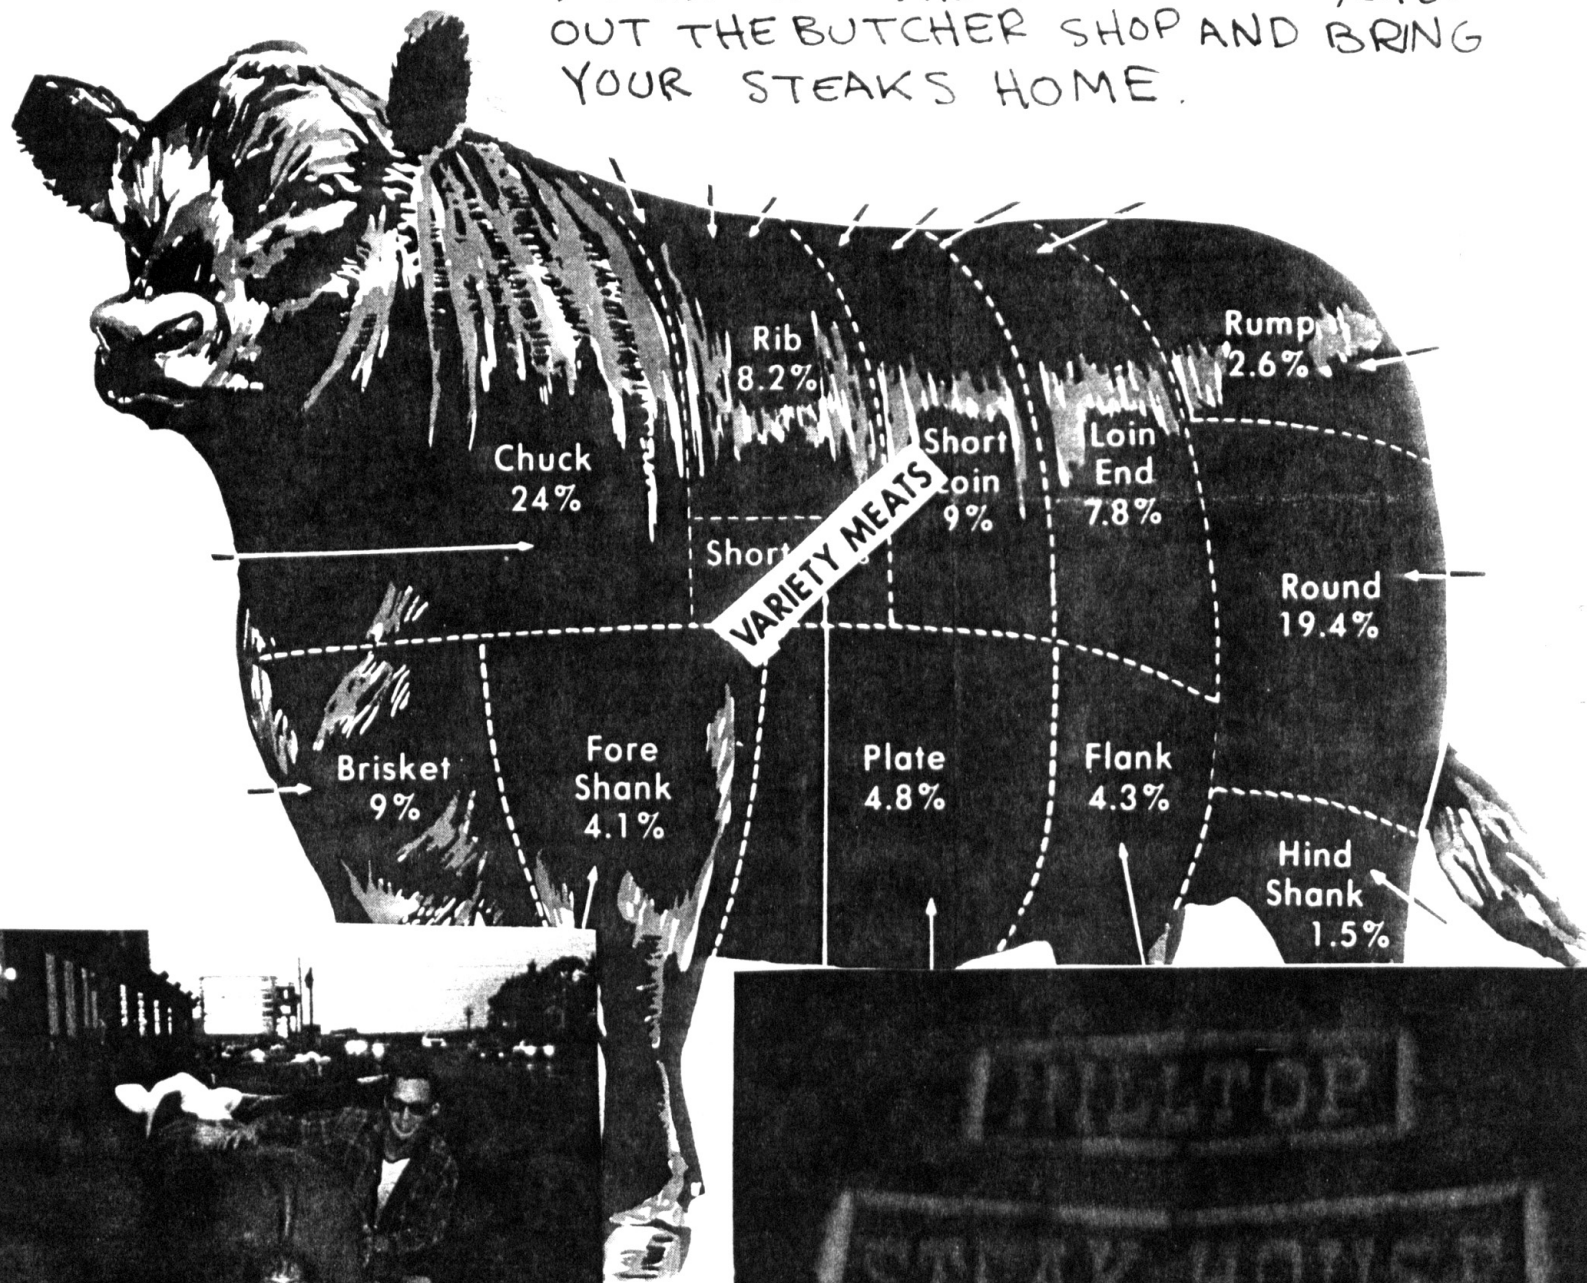 OUT THE BUTCHER SHOP AND BRING
YOUR STEAKS HOME.
Rib
8.2%
Rump
2.6%
Chuck
24%
Short
9%
Loin
End
7.8%
Short
VARIETY MEATS
Round
19.4%
Brisket
9%
Fore
Shank
4.1%
Plate
4.8%
Flank
4.3%
Hind
Shank
1.5%
HILLTOP
STEAK HOUSE